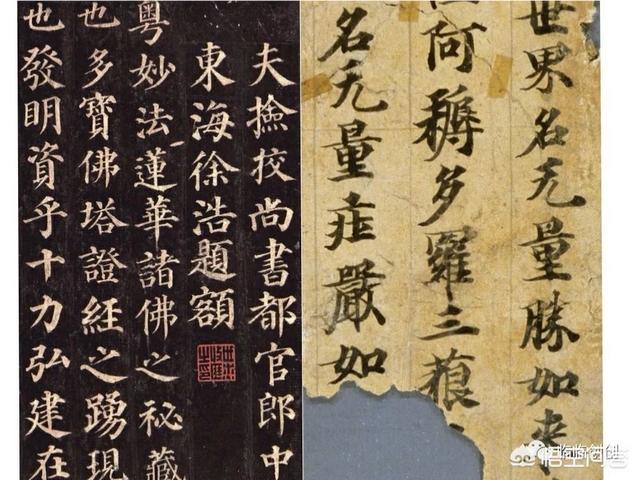 夫撿挍尚書都官郎中
東海徐浩題額
粤妙法蓮華諸佛之秘藏
也多寶佛塔證經之踴現
也發明資乎十力弘建在
世界名无量勝如来
阿耨多羅三藐
名无量庄嚴如
悟空问答